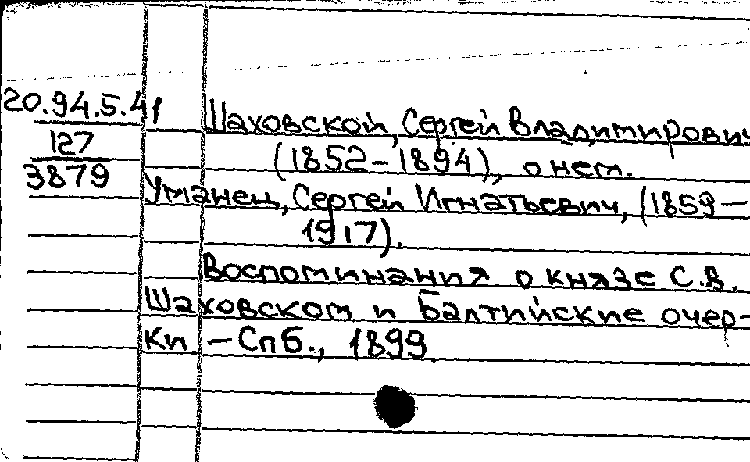 20.94.5.41
127
3879
Шаховской, Сергей Владимирович
(1852-1894), о нем.
Уманец, Сергей Игнатьевич, (1859-
1917).
Воспоминания о князе С.В.
Шаховском и Балтийские очер-
ки. - Спб., 1899.